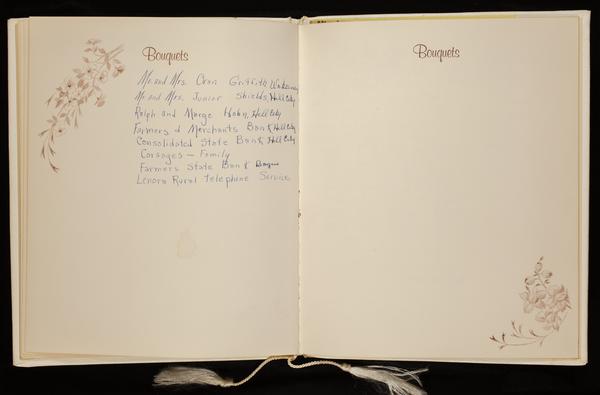 Bouquets
Mr. and Mrs. Oran Griffith
Mr. and Mrs. Junior Shields, Hill City
Ralph and Marge Hahn, Hill City
Farmers & Merchants Bank, Hill City
Consolidated State Bank, Hill City
Corsages — Family
Farmers State Bank
Lenora Rural Telephone Service
Bouquets